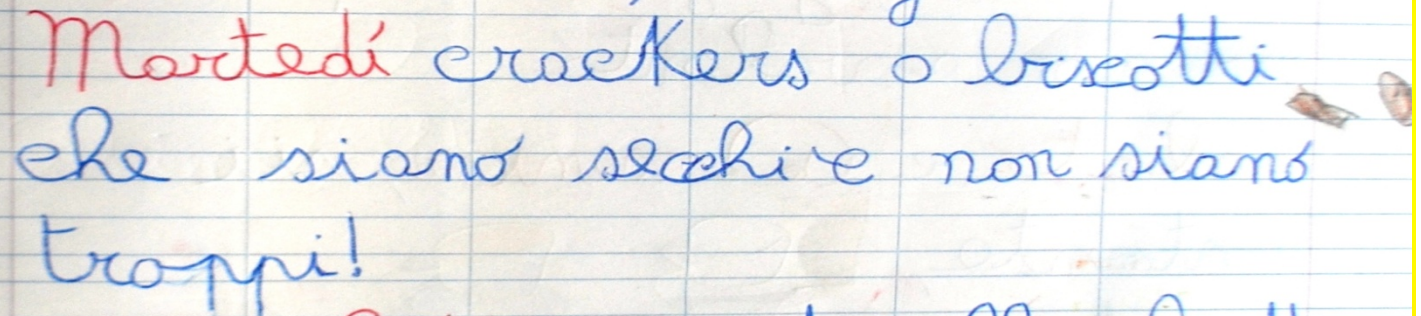 Martedí crackers o biscotti
che siano secchi e non siano
troppi!